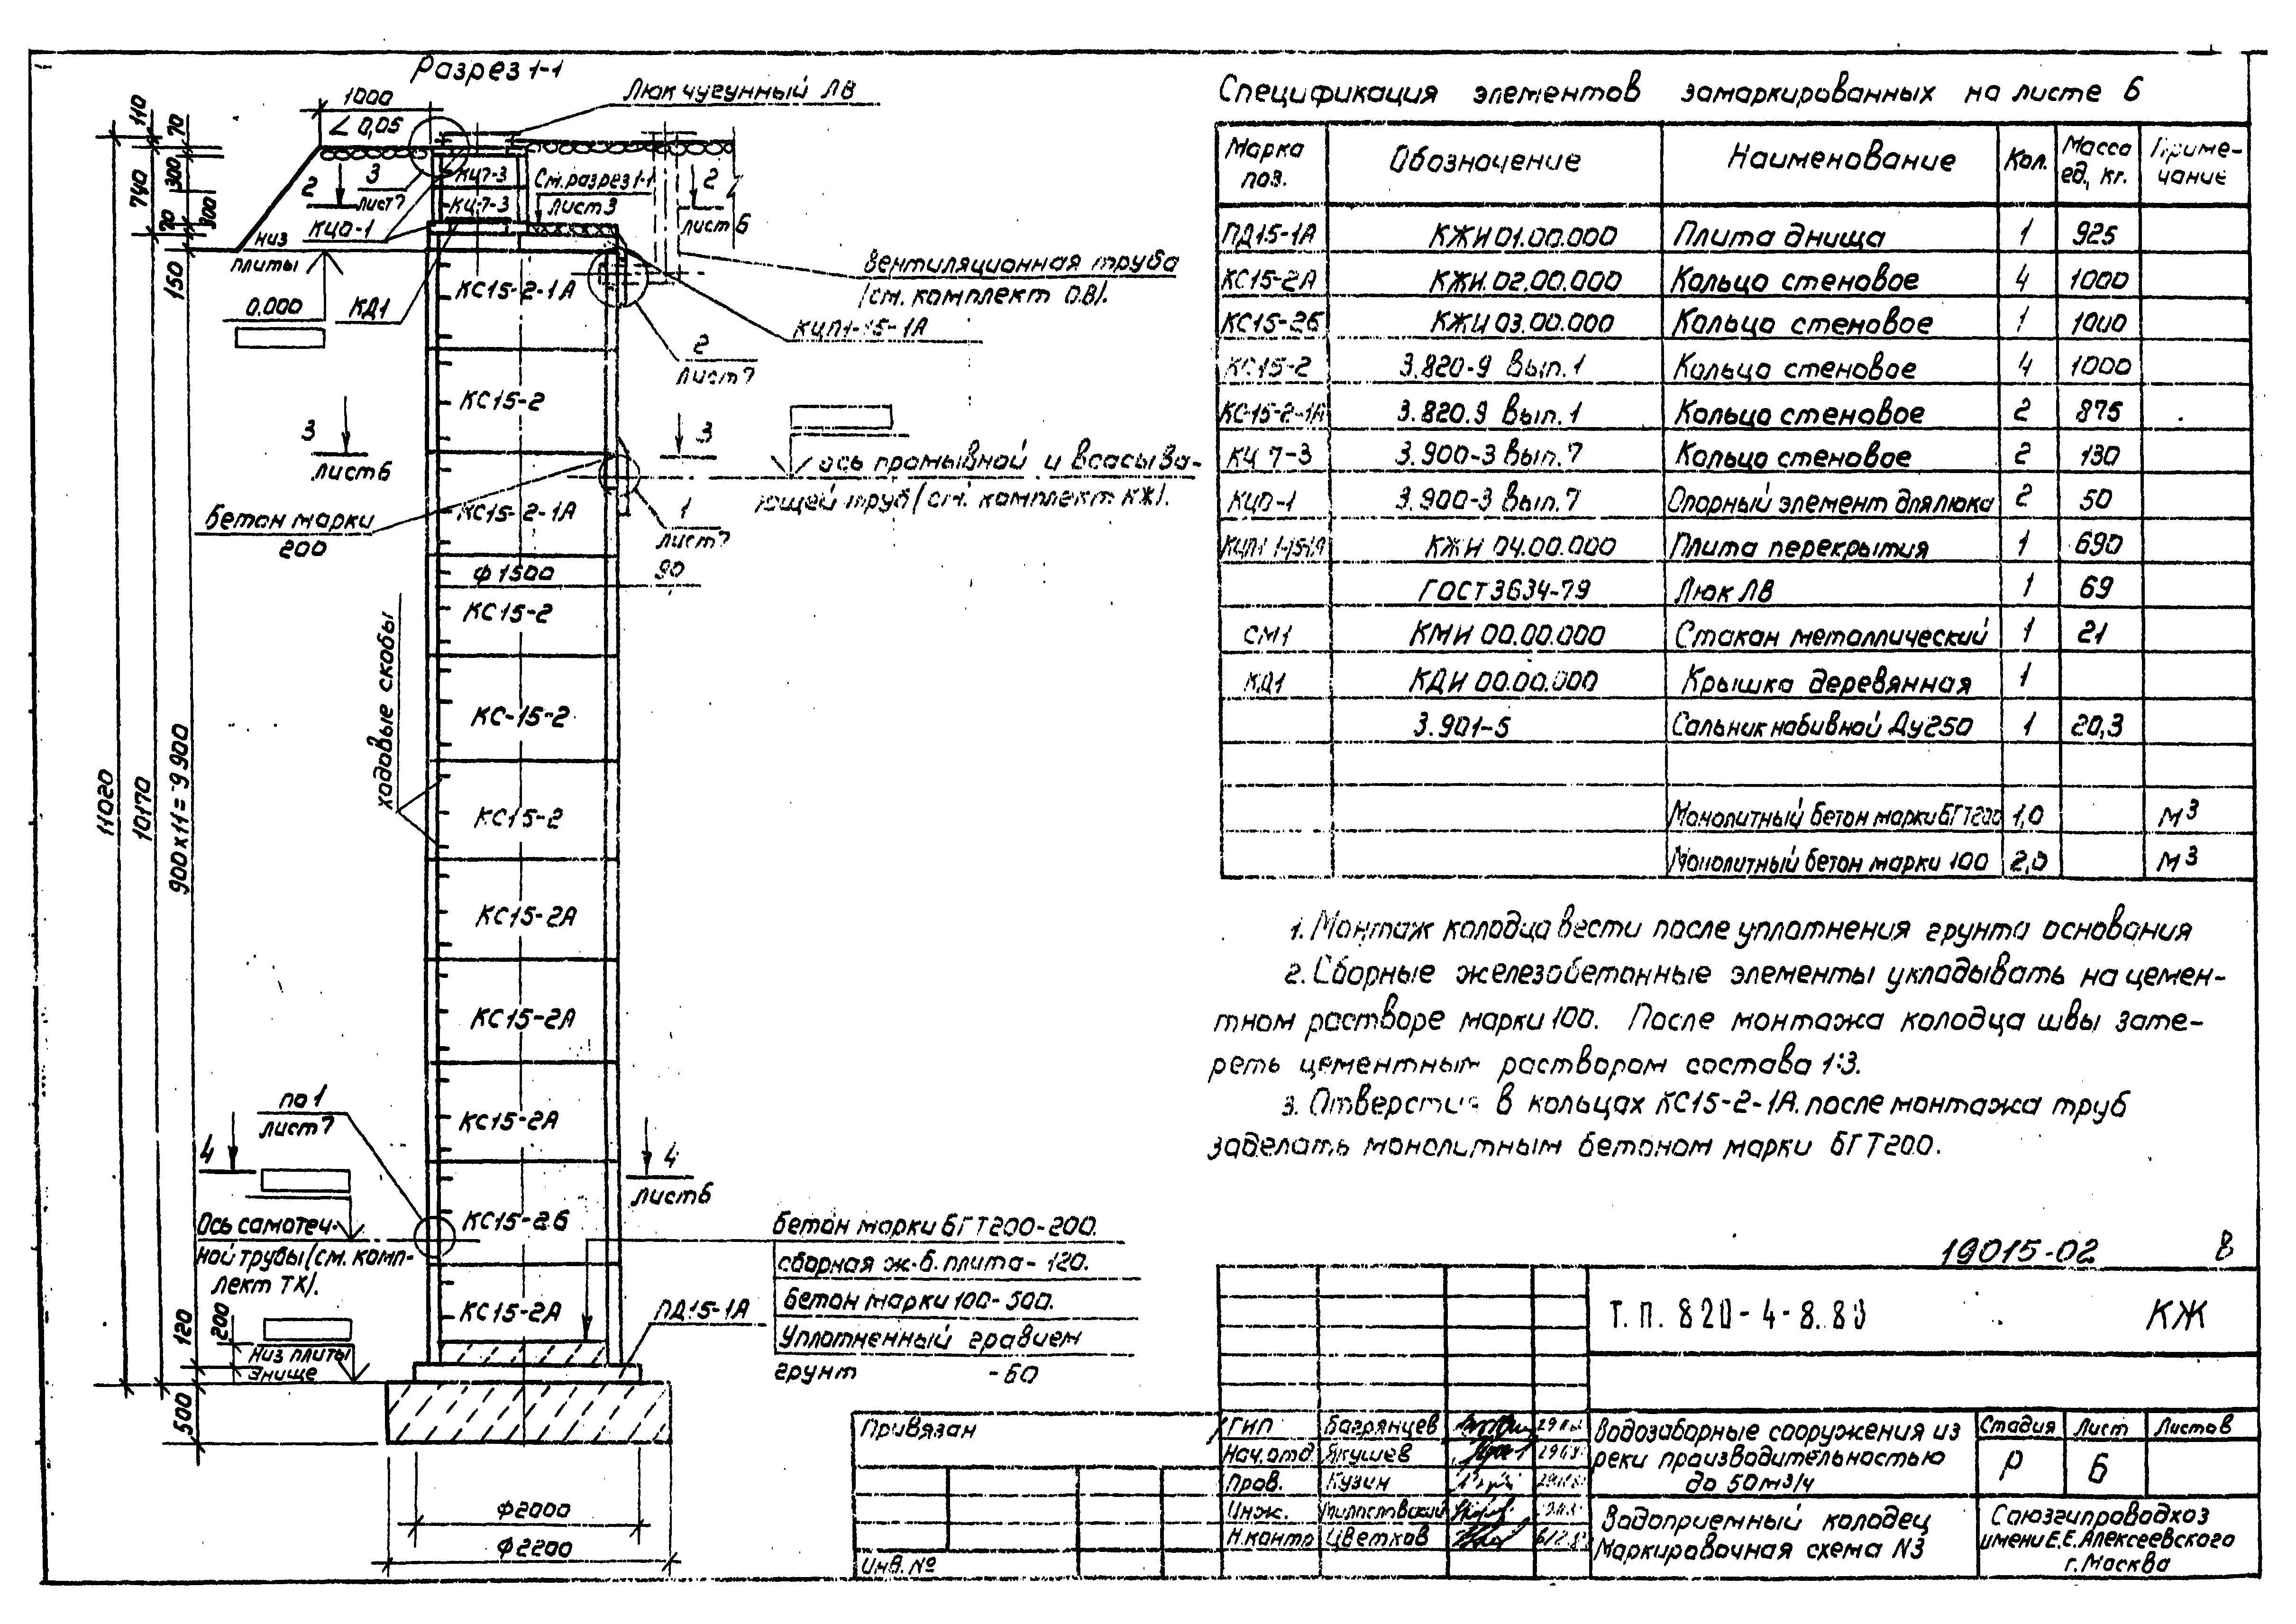 Разрез 1-1
1000
< 0,05
Люк чугунный ЛВ
110
70
740
300
70
300
150
3
лист 7
2
КЦ7-3
КЦ-7-3
См. разрез 1-1
лист 3
2
лист 6
КЦО-1
низ
плиты
0.000
КД1
КС15-2-1А
Вентиляционная труба
(см. комплект ОВ).
КЦП1-15-1А
2
лист 7
КС15-2
3
лист 6
3
ось промывной и всасыва-
ющей труб (см. комплект КЖ).
Бетон марки
200
КС15-2-1А
1
лист 7
ф 1500
90
КС15-2
ходовые скобы
КС-15-2
11020
10170
900х11=9 900
КС15-2
КС15-2А
КС15-2А
по 1
лист 7
КС15-2А
4
4
лист 6
Ось самотеч-
ной трубы (см. комп-
лект ТХ).
КС15-2б
бетон марки БГТ200-200.
сборная ж.б. плита - 120.
бетон марки 100-500.
Уплотненный гравием
грунт -60
КС15-2А
ПД15-1А
120
200
Низ плиты
днище
500
ф2000
ф2200
Спецификация элементов замаркированных на листе 6
Марка поз. Обозначение Наименование Кол. Масса ед., кг. Приме-чание
ПД15-1А КЖИ 01.00.000 Плита днища 1 925
КС15-2А КЖИ.02.00.000 Кольцо стеновое 4 1000
КС15-2б КЖИ 03.00.000 Кольцо стеновое 1 1000
КС15-2 3.820-9 Вып.1 Кольцо стеновое 4 1000
КС-15-2-1А 3.820.9 Вып.1 Кольцо стеновое 2 875
КЦ 7-3 3.900-3 Вып.7 Кольцо стеновое 2 130
КЦО-1 3.900-3 Вып.7 Опорный элемент для люка 2 50
КЦП1-15-1А КЖИ 04.00.000 Плита перекрытия 1 690
ГОСТ 3634-79 Люк ЛВ 1 69
СМ1 КМИ 00.00.000 Стакан металлический 1 21
КД1 КДИ 00.00.000 Крышка деревянная 1
3.901-5 Сальник набивной Ду250 1 20,3
Монолитный бетон марки БГТ200 1,0 м3
Монолитный бетон марки 100 2,0 м3
1. Монтаж колодца вести после уплотнения грунта основания
2. Сборные железобетонные элементы укладывать на цемен-
тном растворе марки 100. После монтажа колодца швы зате-
реть цементным раствором состава 1:3.
3. Отверстия в кольцах КС15-2-1А. после монтажа труб
заделать монолитным бетоном марки БГТ200.
19015-02 8
Т.П. 820-4-8.83 КЖ
Привязан
Инв. №
ГИП Багрянцев
Нач. отд. Якушев
Пров. Кузин
Инж. Милославский
Н.контр Цветков
Водозаборные сооружения из
реки производительностью
до 50м3/ч
Стадия Лист Листов
Р 6
Водоприемный колодец
Маркировочная схема N3
Союзгипроводхоз
имени Е.Е. Алексеевского
г. Москва